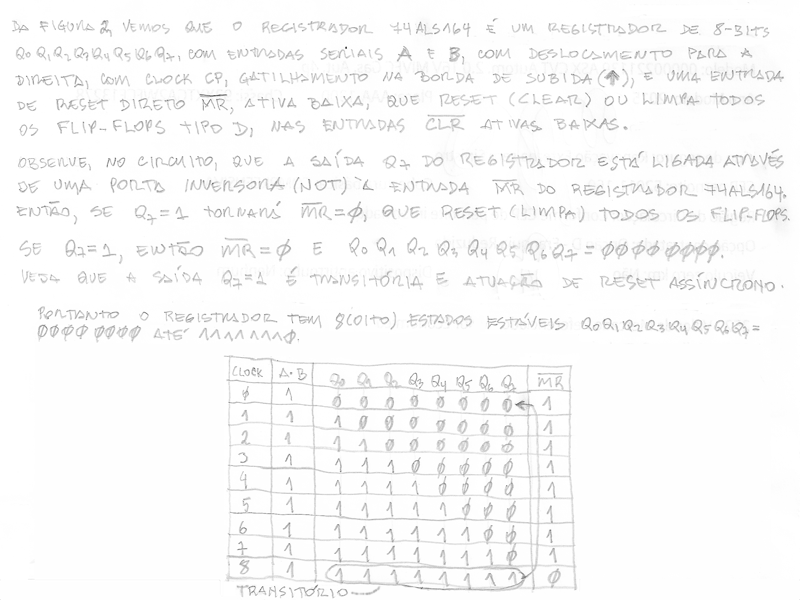 DA FIGURA 2, VEMOS QUE O REGISTRADOR 74ALS164 É UM REGISTRADOR DE 8-BITS
Q0 Q1 Q2 Q3 Q4 Q5 Q6 Q7, COM ENTRADAS SERIAIS A E B, COM DESLOCAMENTO PARA A
DIREITA, COM CLOCK CP, GATILHAMENTO NA BORDA DE SUBIDA (↑), E UMA ENTRADA
DE RESET DIRETO M̅R̅, ATIVA BAIXA, QUE RESET (CLEAR) OU LIMPA TODOS
OS FLIP-FLOPS TIPO D, NAS ENTRADAS C̅L̅R̅ ATIVAS BAIXAS.
OBSERVE, NO CIRCUITO, QUE A SAÍDA Q7 DO REGISTRADOR ESTÁ LIGADA ATRAVÉS
DE UMA PORTA INVERSORA (NOT) À ENTRADA M̅R̅ DO REGISTRADOR 74ALS164.
ENTÃO, SE Q7=1 TORNARÁ M̅R̅=0, QUE RESET (LIMPA) TODOS OS FLIP-FLOPS.
SE Q7=1, ENTÃO M̅R̅=0 E Q0 Q1 Q2 Q3 Q4 Q5 Q6 Q7 = 0000 0000.
VEJA QUE A SAÍDA Q7=1 É TRANSITÓRIA E ATUAÇÃO DE RESET ASSÍNCRONO.
PORTANTO O REGISTRADOR TEM 8(OITO) ESTADOS ESTÁVEIS Q0Q1Q2Q3Q4Q5Q6Q7=
0000 0000 ATÉ 11111110.
CLOCK A·B Q0 Q1 Q2 Q3 Q4 Q5 Q6 Q7 M̅R̅
0 1 0 0 0 0 0 0 0 0 1
1 1 1 0 0 0 0 0 0 0 1
2 1 1 1 0 0 0 0 0 0 1
3 1 1 1 1 0 0 0 0 0 1
4 1 1 1 1 1 0 0 0 0 1
5 1 1 1 1 1 1 0 0 0 1
6 1 1 1 1 1 1 1 0 0 1
7 1 1 1 1 1 1 1 1 0 1
8 1 1 1 1 1 1 1 1 1 0
TRANSITÓRIO